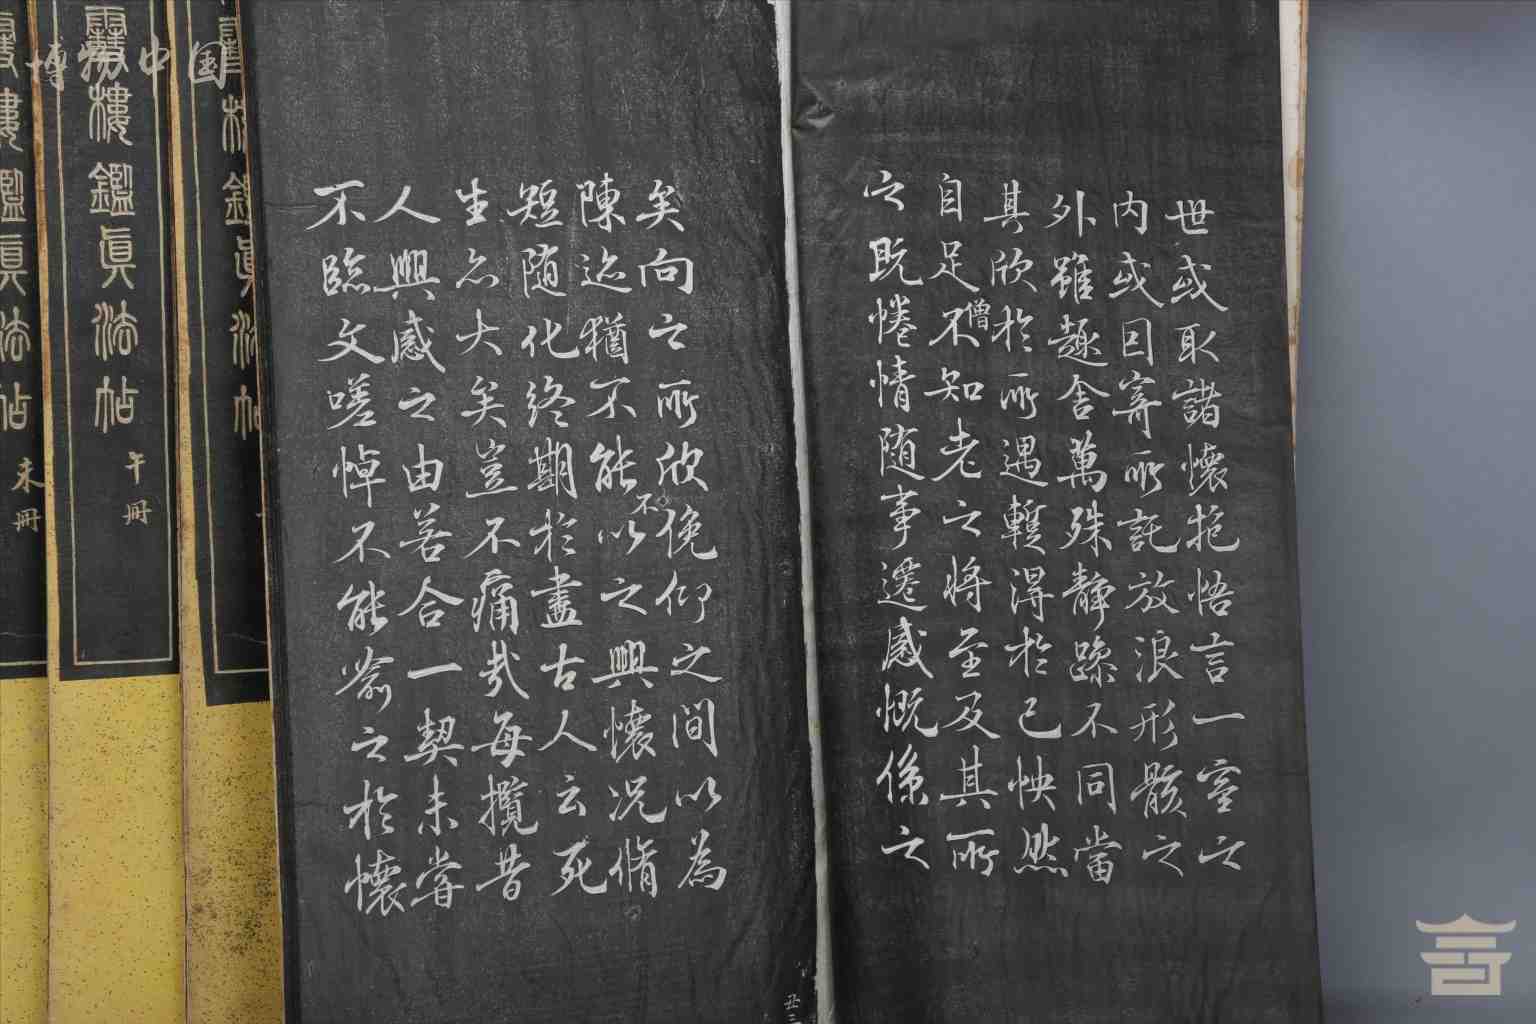 世或取諸懷抱悟言一室之
内或因寄所託放浪形骸之
外雖趣舍萬殊靜躁不同當
其欣於所遇蹔得於己怏然
僧
自足不知老之將至及其所
之既惓情随事遷感慨係之
矣向之所欣俛仰之間以為
陳迹猶不能不以之興懷況脩
短随化終期於盡古人云死
生亦大矣豈不痛哉每攬昔
人興感之由若合一契未嘗
不臨文嗟悼不能喻之於懷
丑二
樓鑑眞法帖
樓鑑眞法帖 午冊
樓鑑眞法帖 未冊
博物中国